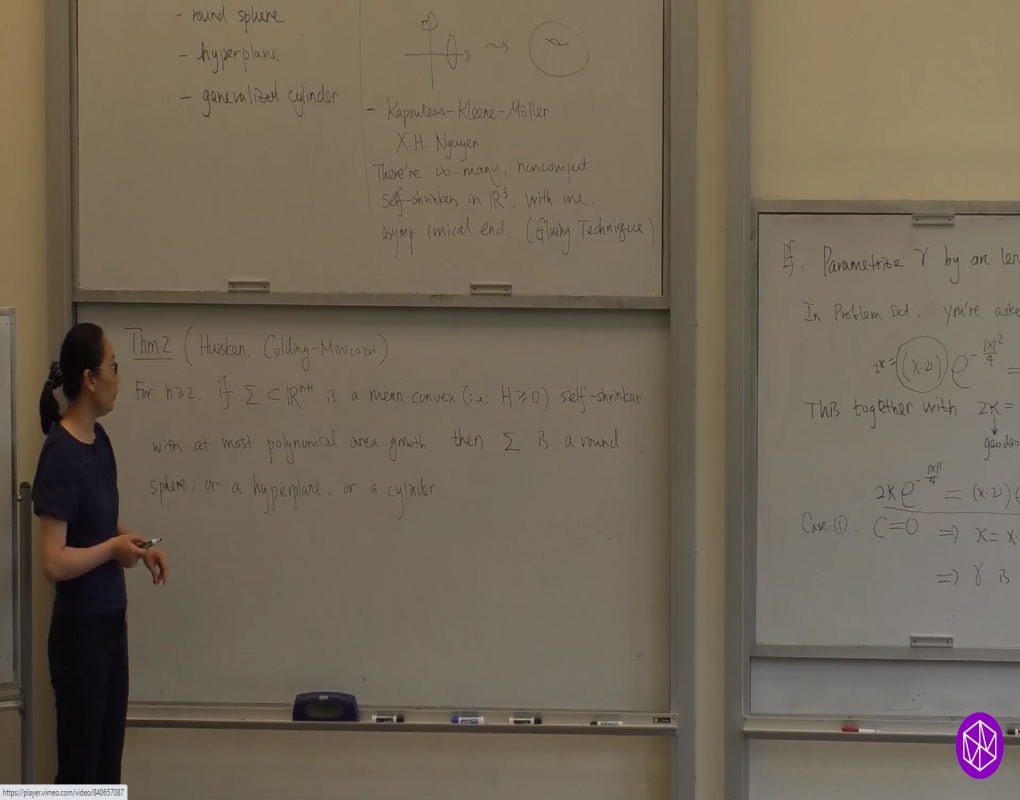 - round sphere
- hyperplane
- generalized cylinder
- Kapouleas-Kleene-Möller
X.H. Nguyen
There're ∞-many, noncompact
self-shrinkers in ℝ³, with one
asymp. conical end. (Gluing Technique)
Thm2 (Huisken, Colding-Minicozzi)
For n≥2, if Σ ⊂ ℝⁿ⁺¹ is a mean convex (i.e. H≥0) self-shrinker
with at most polynomial area growth, then Σ is a round
sphere, or a hyperplane, or a cylinder.
Pf: Parametrize γ by arc len
In Problem Set, you're aske
2κ = (x·ν) e^{-|x|²/4} =
This together with 2κ =
↓
2κ e^{-|x|²/4} = (x·ν)
Case ①. C=0 ⇒ κ = x·
⇒ γ is
https://player.vimeo.com/video/840657087